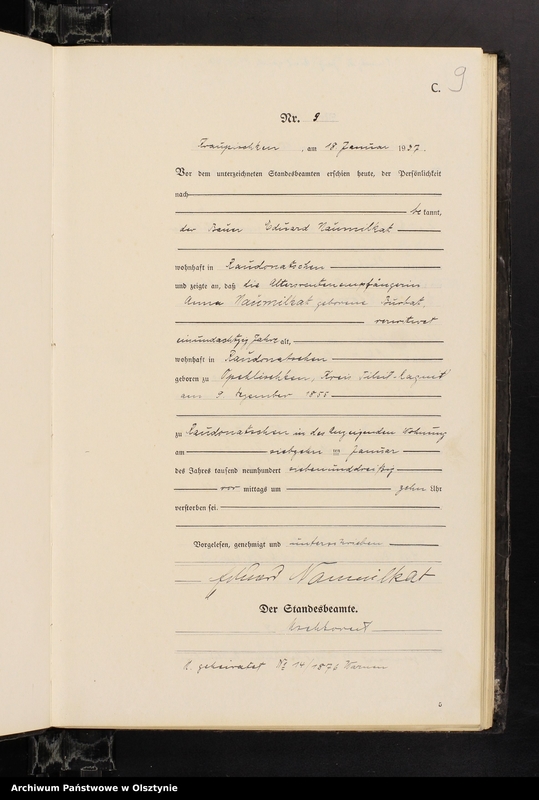 C. 9
Nr. 9
, am 18 Januar 1937.
Vor dem unterzeichneten Standesbeamten erschien heute, der Persönlichkeit
nach
be kannt,
der Bauer Eduard Naumilkat
wohnhaft in Raudonatschen
und zeigte an, daß die Altersrentenempfängerin
Anna Naumilkat geborene
verwitwet
einundachtzig Jahre alt,
wohnhaft in Raudonatschen
geboren zu Kreis Tilsit-Ragnit
am 9 Dezember 1855
zu Raudonatschen in des Anzeigenden Wohnung
am siebzehn ten Januar
des Jahres tausend neunhundert siebenunddreißig
vor mittags um zehn Uhr
verstorben sei.
Vorgelesen, genehmigt und unterschrieben
Eduard Naumilkat
Der Standesbeamte.
geheiratet No 14/1878
5
Archiwum Państwowe w Olsztynie